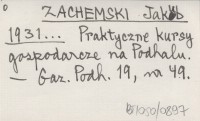 ZACHEMSKI Jakób
1931... Praktyczne kursy
gospodarcze na Podhalu.
— Gaz. Podh. 19, nr 49.